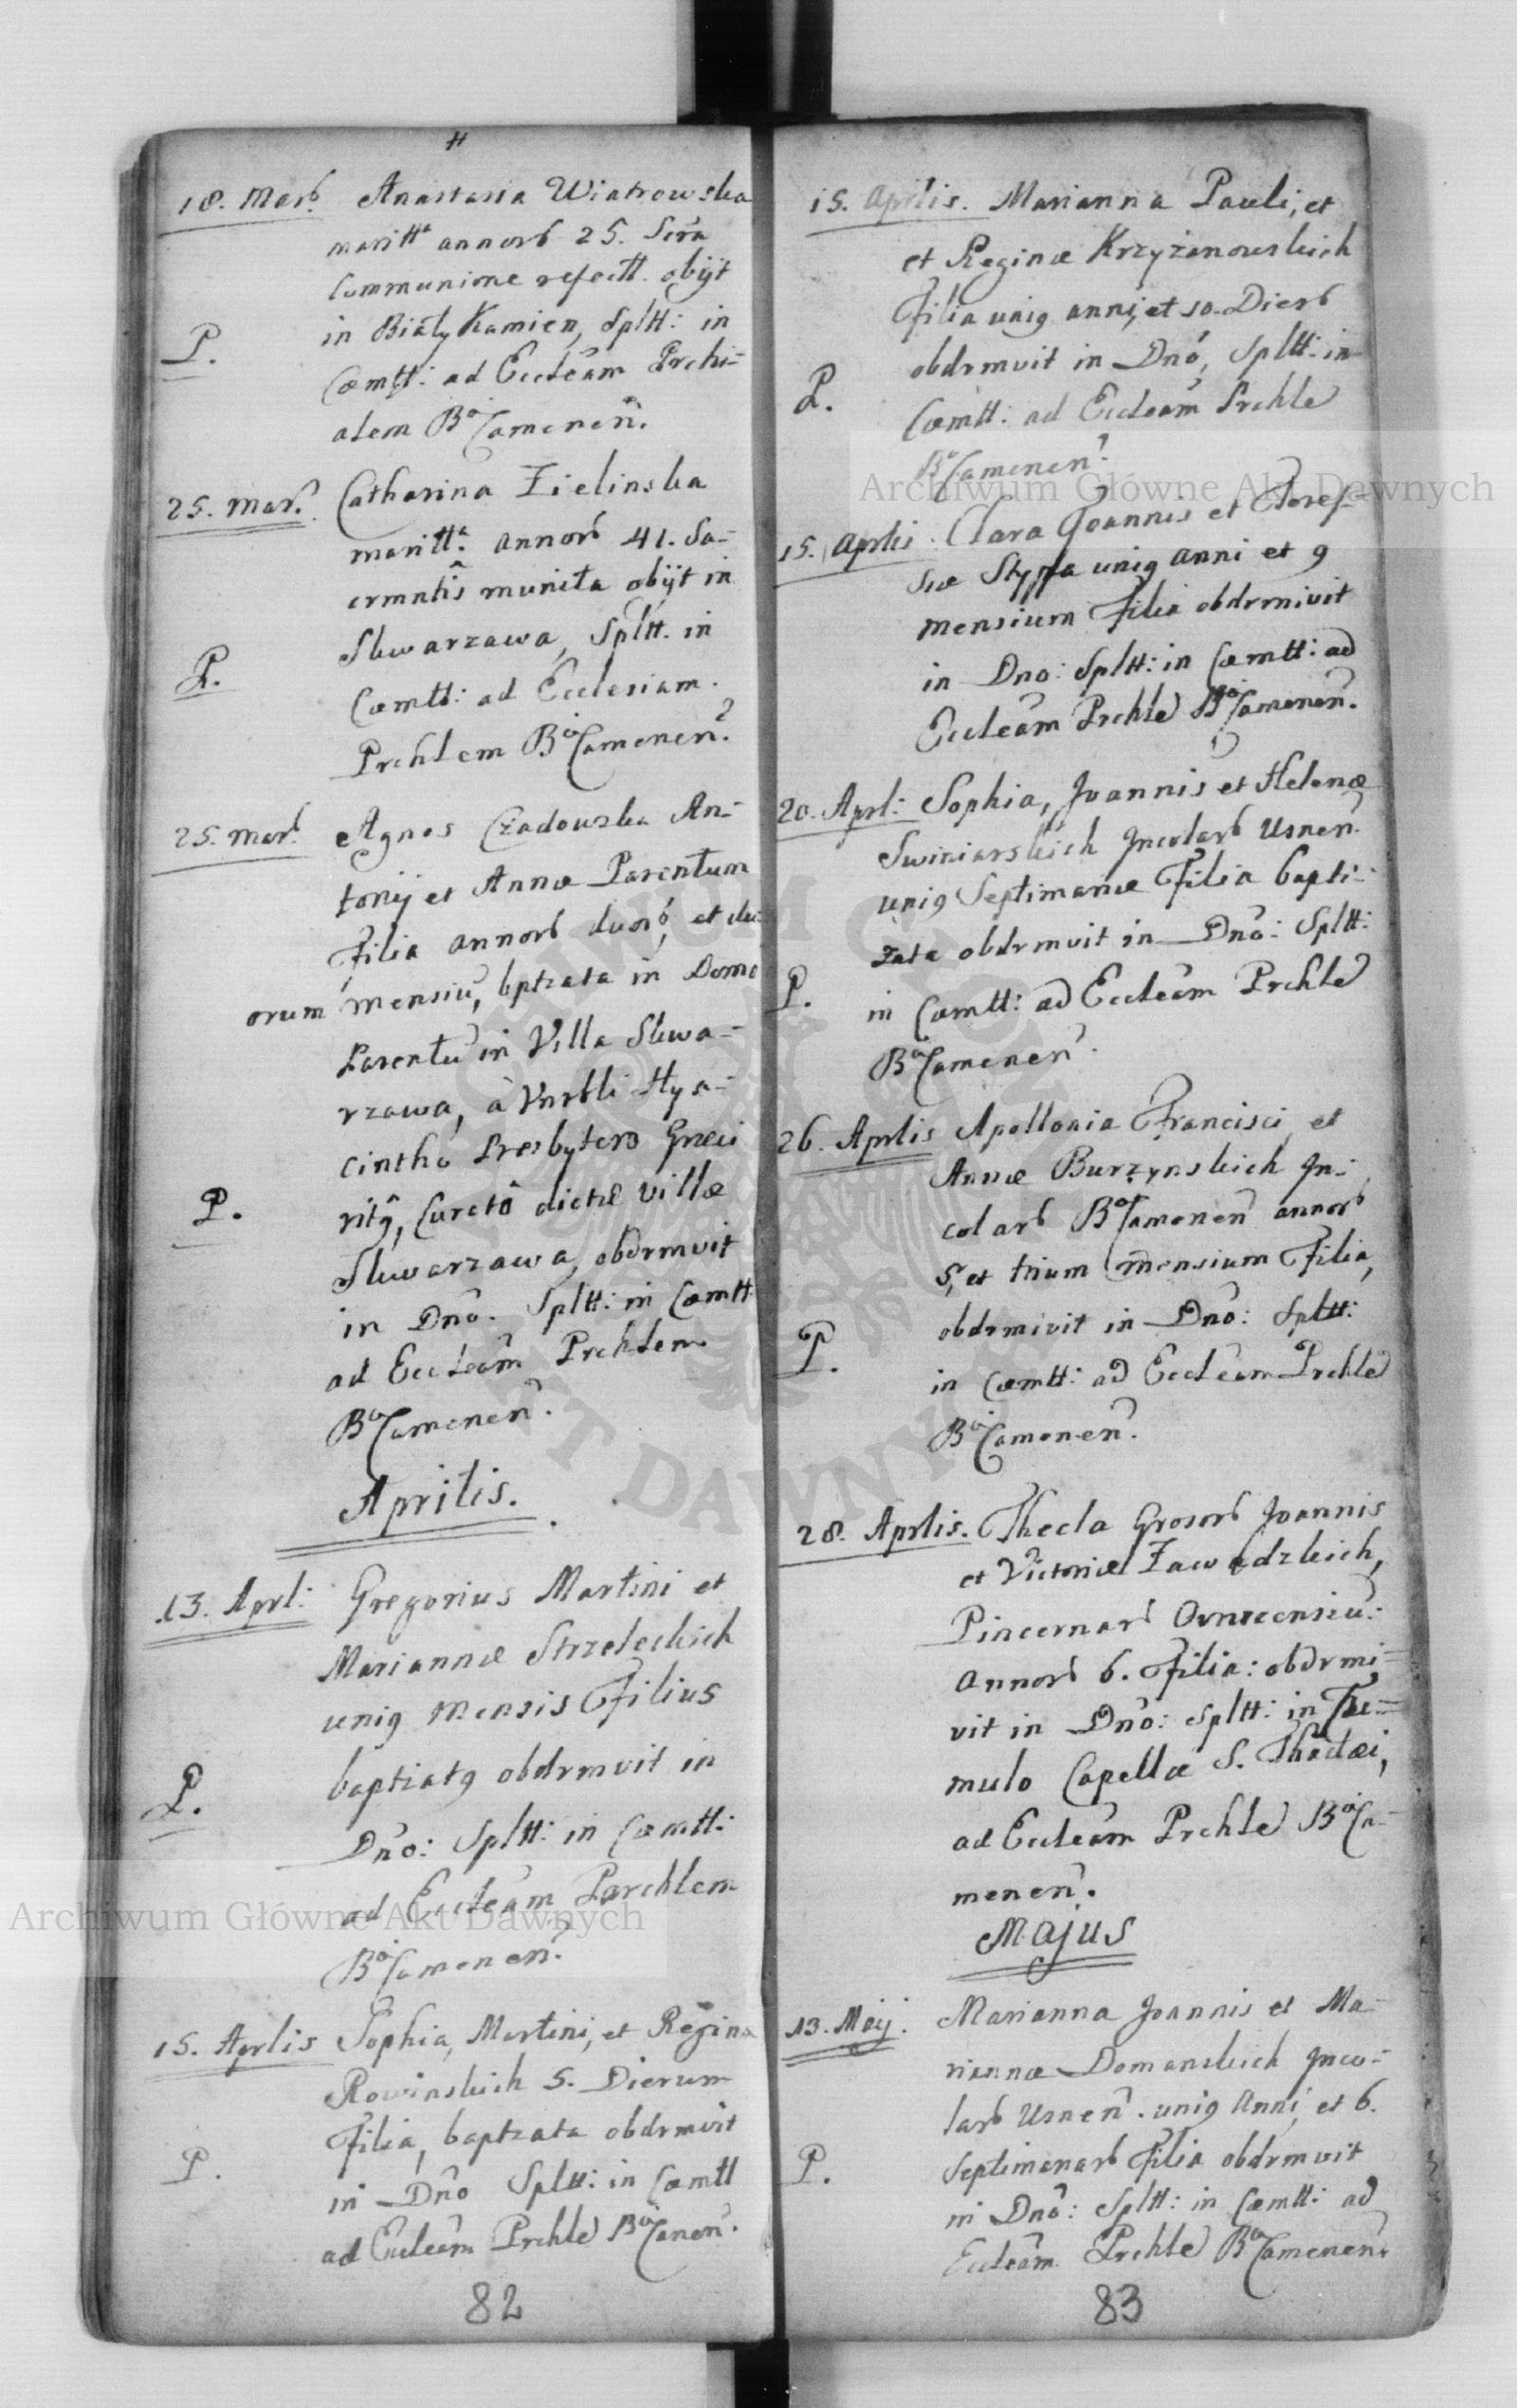 18. Marb. Anastasia Wiatrowska
maritta annorb 25. Sera
Communione refectt. obijt
in Biały Kamien, Spltt: in
P.
Cœmtt: ad Eccleãm Prchi=
alem Bo Camenen.
25. Mar. Catharina Zielinska
maritta. annorb 41. Sa=
crmntis munita obijt in
Skwarzawa, Spltt. in
P.
Cœmtt: ad Ecclesiam.
Prchlem Bo Camenen.
25. Marb. Agnes Czadowska An=
tonij et Annæ Parentum
Filia annorb duoró, et du=
orum mensiũ, bptzata in Domo
Parentũ in Villa Skwa=
rzawa, à Vnrbli Hya=
cinthó Presbytero Græci
P.
ritg, Curató dictæ Villæ
Skwarzawa, obdrmvit
in Dnó. Spltt: in Cœmtt
ad Eccleãm Prchlem
Bo Camenen.
Aprilis.
13. Aprl: Gregorius Martini et
Mariannæ Strzeleckich
unig mensis Filius
baptzatg obdrmvit in
P.
Dnó: Spltt: in Cœmtt:
ad Eccleãm Parchlem
Bo Camenen.
15. Aprlis Sophia, Martini, et Regina
Rowinskich 5. Dierum
Filia, baptzata obdrmvit
P.
in Dnó Spltt: in Cœmtt
ad Eccleãm Prchle Bo Canen.
82
15. Aprilis. Marianna Pauli, et
et Reginæ Krzyżanowskich
Filia unig anni, et 10. Dierb
obdrmvit in Dnó, Spltt: in
P.
Cœmtt: ad Eccleãm Prchle
Bo Camenen.
15. Aprlis. Clara Joannis et Josep=
hæ Styppa unig anni et 9
mensium Filia obdrmivit
in Dno: Spltt: in Cœmtt: ad
Eccleãm Prchle Bo Camenen.
20. Aprl: Sophia, Joannis et Helenæ
Swiniarskich Jncolarb Usnen.
unig Septimanæ Filia bapti=
zata obdrmvit in Dnó: Spltt:
P.
in Cœmtt: ad Eccleãm Prchle
Bo Camenen.
26. Aprlis Apollonia Francisci et
Annæ Burzynskich Jn=
colarb Bo Camenen annorb
5, et trium mensium Filia,
obdrmivit in Dnó: Spltt:
P.
in Cœmtt: ad Eccleãm Prchle
Bo Camenen.
28. Aprlis. Thecla Grosorb Joannis
et Victoriæ Zawadzkich,
Pincernarb
Annorb 6. Filia: obdrmi=
vit in Dnó: Spltt: in Tu=
mulo Capellæ S. Thadæi,
ad Eccleãm Prchle Bo Ca=
menen.
Majus
13. Maij. Marianna Joannis et Ma=
riannæ Domanskich Jnco=
larb Usnen. unig Anni, et 6.
P.
Septimanarb Filia obdrmvit
in Dnó: Spltt: in Cœmtt: ad
Eccleãm Prchle Bo Camenen.
83
Archiwum Główne Akt Dawnych
Archiwum Główne Akt Dawnych